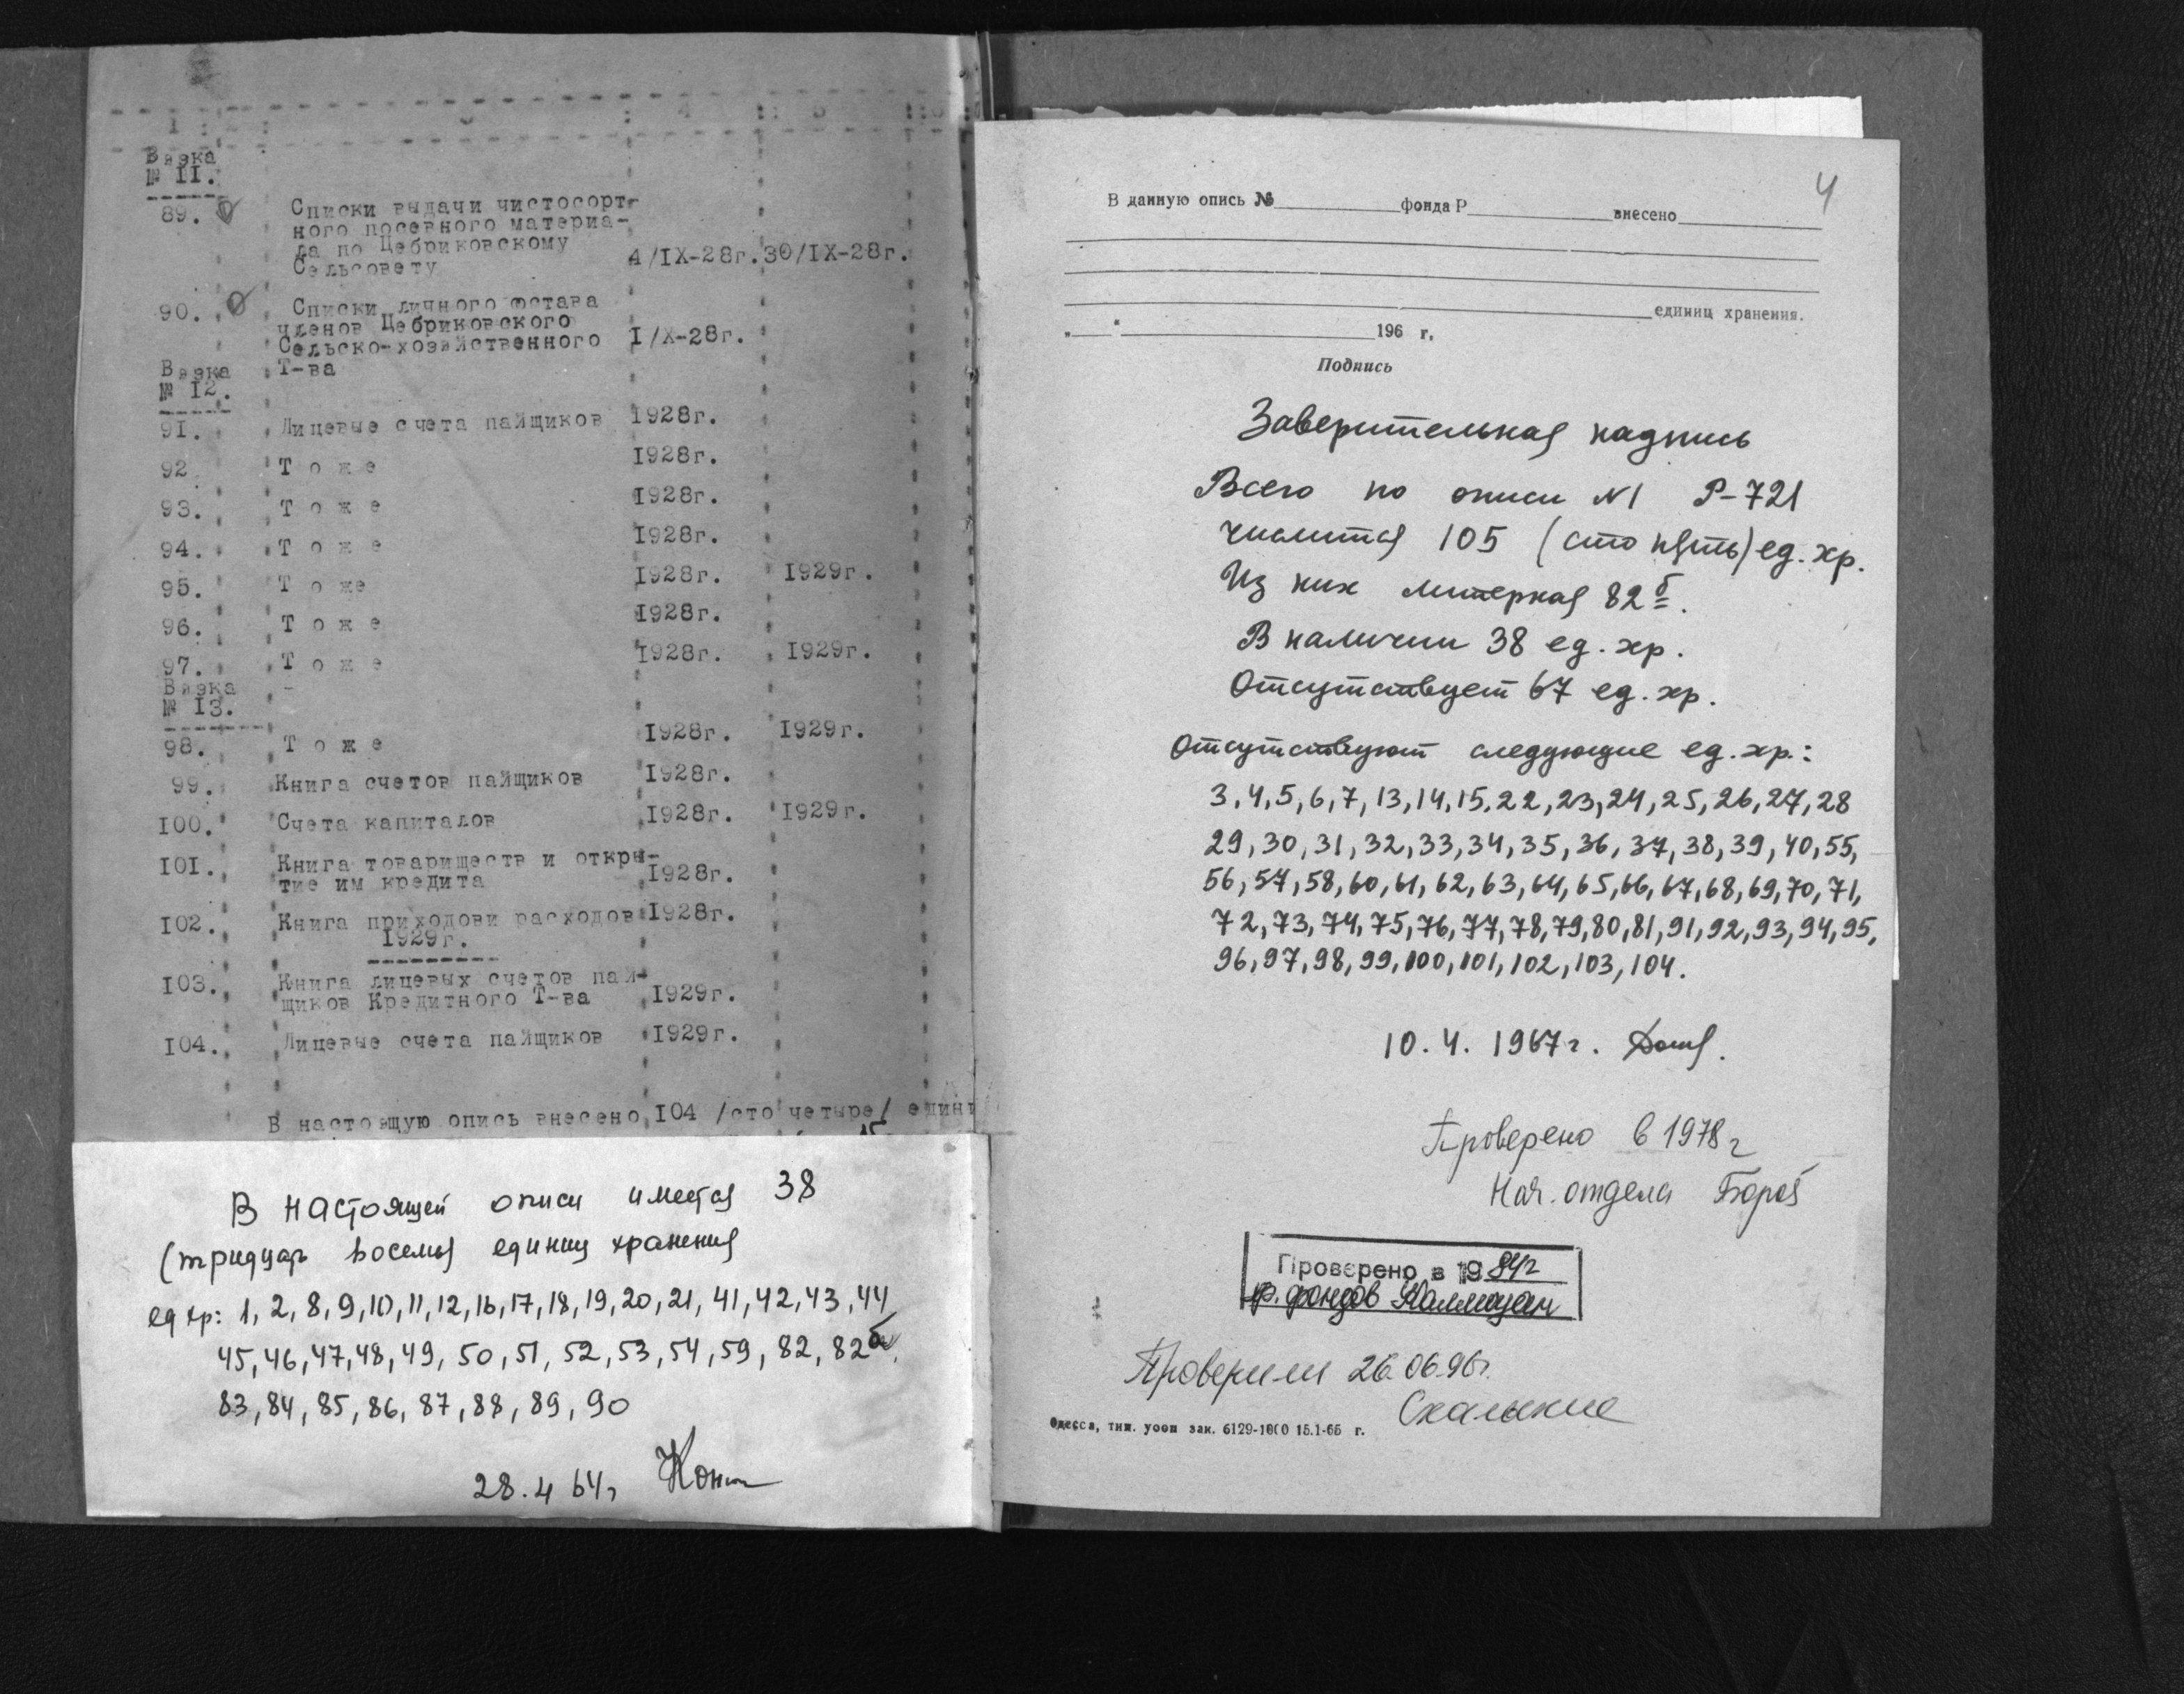 I 2 3 4 5 6
Вязка
№ II.
89. Списки выдачи чистосорт-
ного посевного материа-
ла по Цебриковскому
Сельсовету 4/IX-28г. 30/IX-28г.
90. Списки личного состава
членов Цебриковского
Сельско-хозяйственного I/X-28г.
Т-ва
Вязка
№ I2.
91. Лицевые счета пайщиков 1928г.
92. Т о ж е 1928г.
93. Т о ж е 1928г.
94. Т о ж е 1928г.
95. Т о же 1928г. 1929г.
96. Т о ж е 1928г.
97. Т о ж е 1928г. 1929г.
Вязка
№ I3.
98. Т о ж е 1928г. 1929г.
99. Книга счетов пайщиков 1928г.
I00. Счета капиталов 1928г. 1929г.
I0I. Книга товариществ и откры-
тие им кредита 1928г.
I02. Книга приходови расходов 1928г.
1929г.
I03. Книга лицевых счетов пай-
щиков Кредитного Т-ва 1929г.
I04. Лицевые счета пайщиков 1929г.
В настоящую опись внесено I04 /сто четыре/ едини
В настоящей описи имеется 38
(тридцать восемь) единиц хранения
ед хр: 1, 2, 8, 9, 10, 11, 12, 16, 17, 18, 19, 20, 21, 41, 42, 43, 44
45, 46, 47, 48, 49, 50, 51, 52, 53, 54, 59, 82, 82б,
83, 84, 85, 86, 87, 88, 89, 90
28.4 64г
4
В данную опись № фонда Р внесено
единиц хранения.
„ “ 196 г.
Подпись
Заверительная надпись
Всего по описи N1 Р-721
числится 105 (сто пять) ед. хр.
Из них литерная 82б.
В наличии 38 ед. хр.
Отсутствует 67 ед. хр.
Отсутствуют следующие ед. хр.:
3, 4, 5, 6, 7, 13, 14, 15, 22, 23, 24, 25, 26, 27, 28
29, 30, 31, 32, 33, 34, 35, 36, 37, 38, 39, 40, 55,
56, 57, 58, 60, 61, 62, 63, 64, 65, 66, 67, 68, 69, 70, 71,
72, 73, 74, 75, 76, 77, 78, 79, 80, 81, 91, 92, 93, 94, 95,
96, 97, 98, 99, 100, 101, 102, 103, 104.
10. 4. 1967 г.
Проверено в 1978 г
Нач. отдела
Проверено в 1984г
хр. фондов
Проверили 26.06.96г.
Одесса, тип. уооп зак. 6129-1000 15.1-65 г.